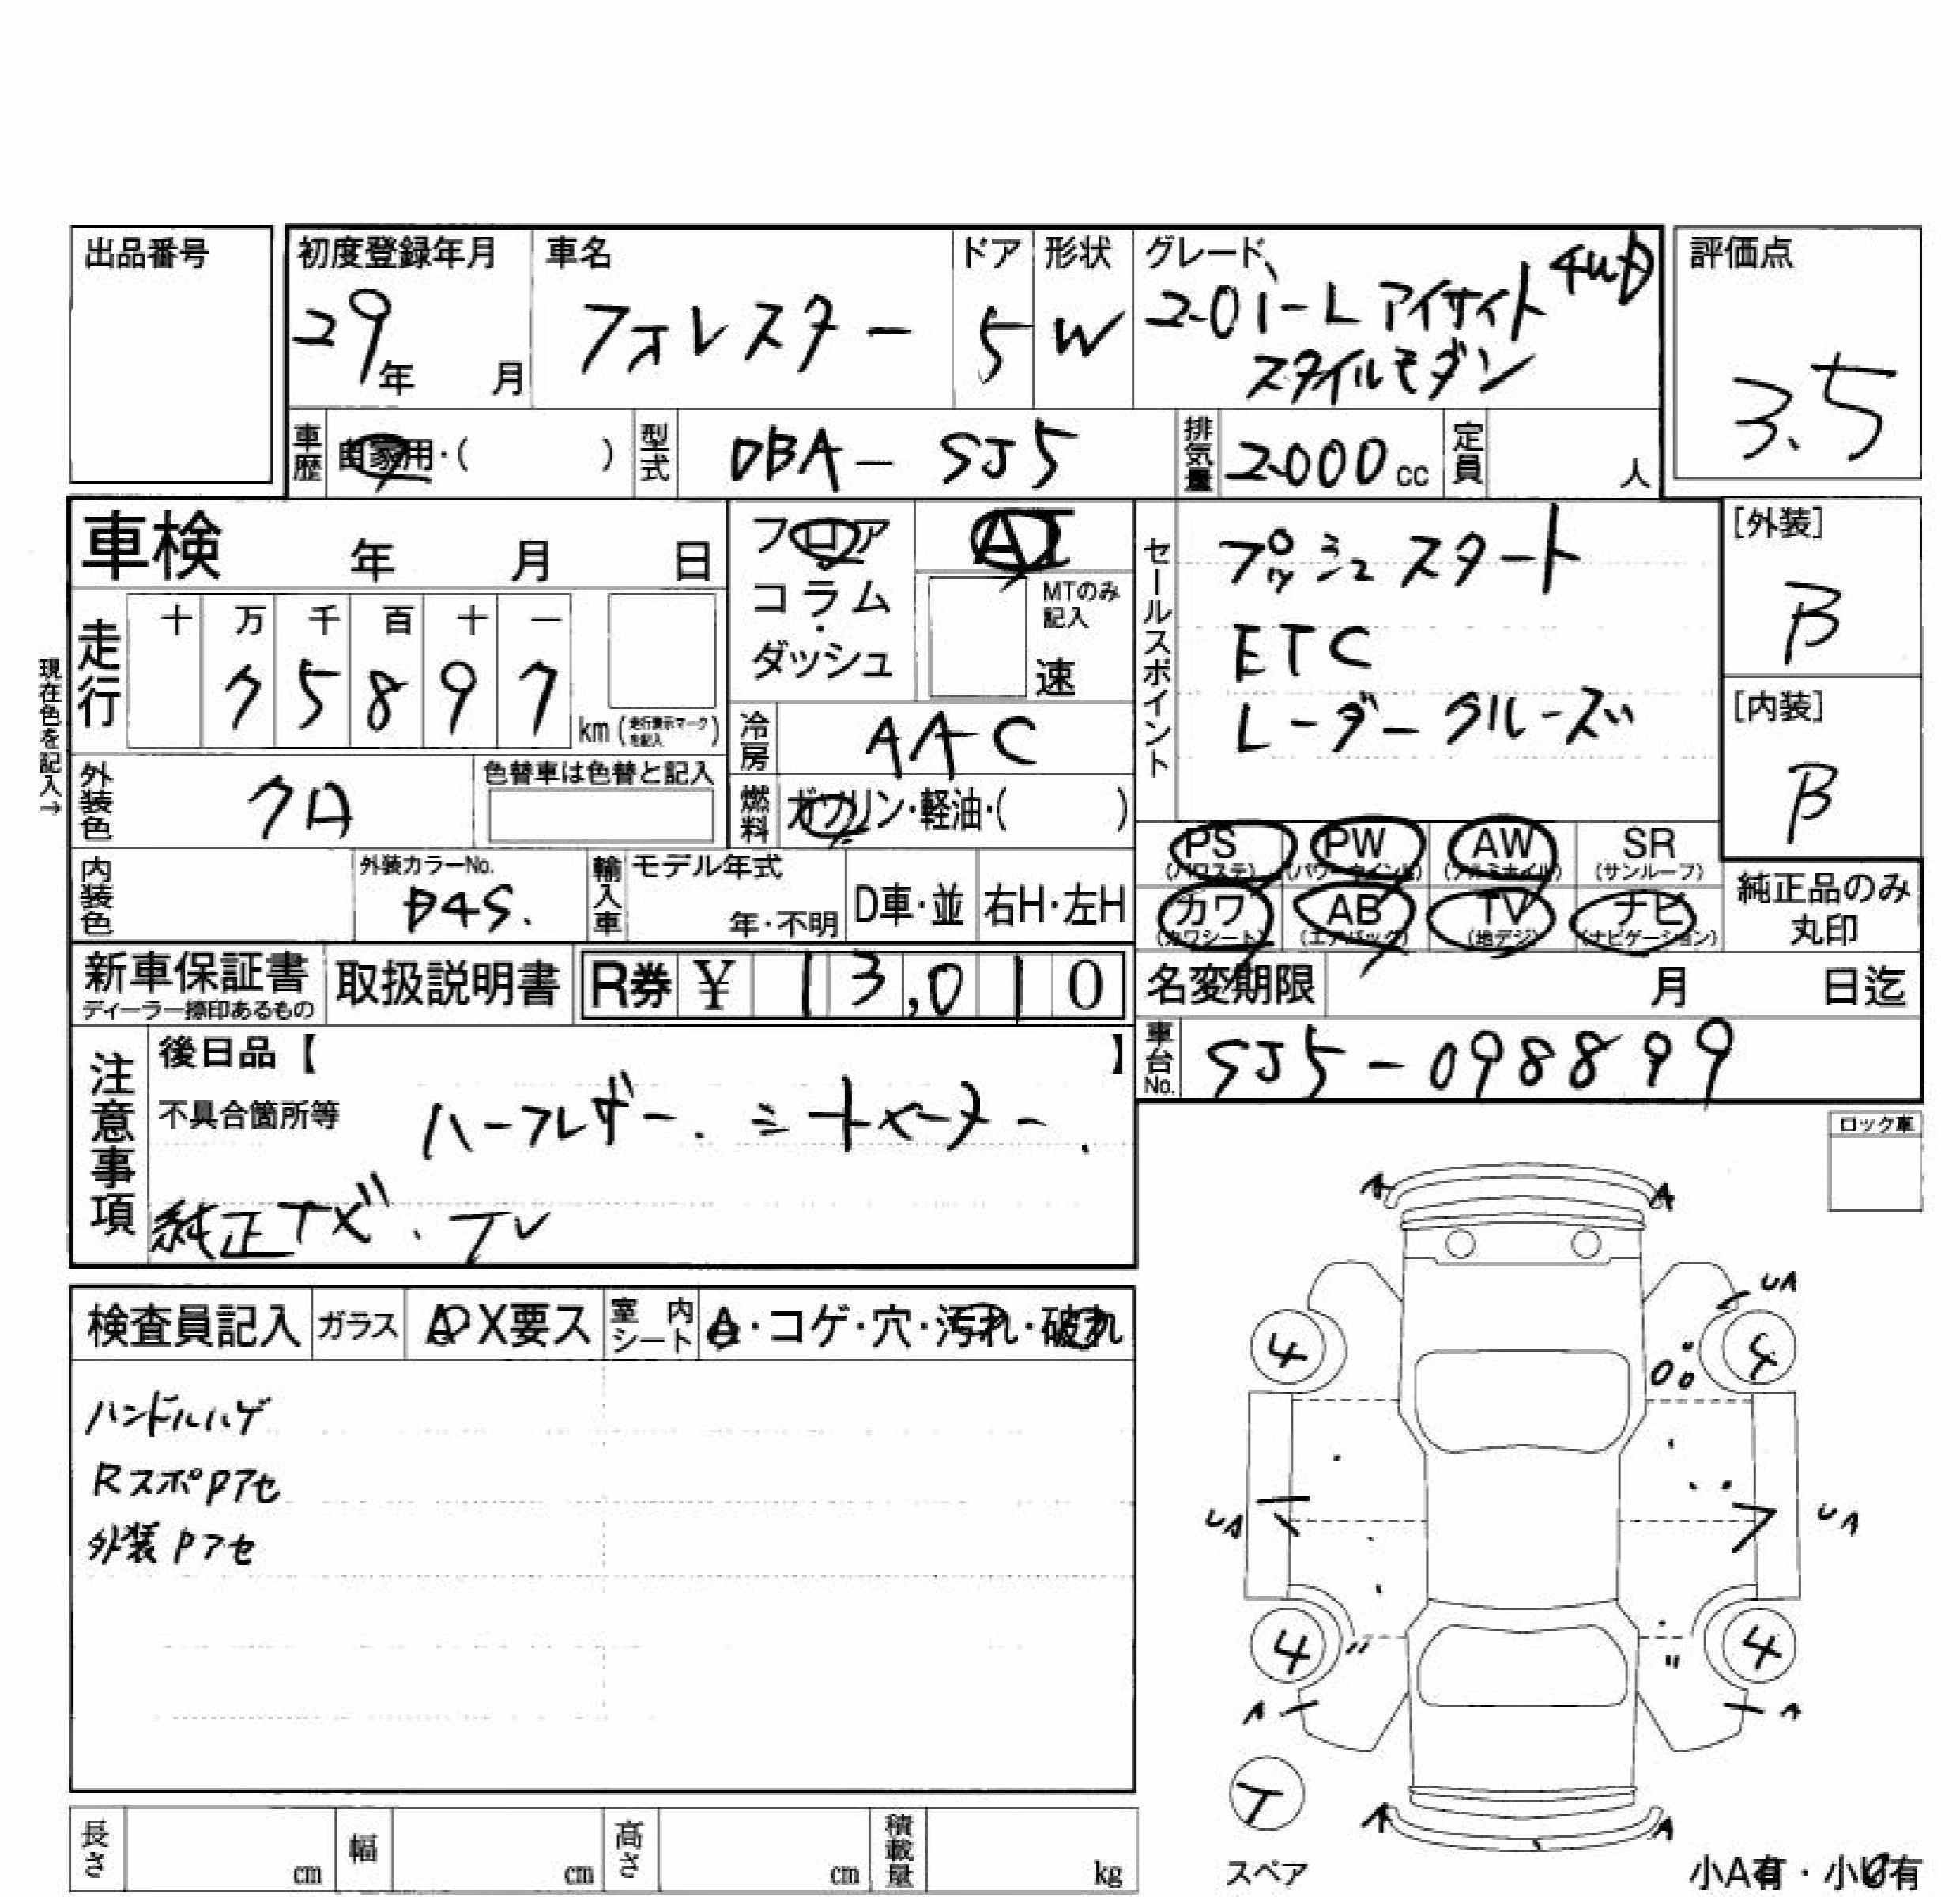 出品番号
初度登録年月
29年 月
車名
フォレスター
ドア
5
形状
W
グレード
2.0i-L アイサイト 4WD
スタイルモダン
評価点
3.5
車歴
自家用・( )
型式
DBA-SJ5
排気量
2000cc
定員
人
車検 年 月 日
フロア
コラム・ダッシュ
AT
MTのみ記入
速
現在色を記入→
走行
十 万 千 百 十 一
7 5 8 9 7
km(走行表示マークを記入)
冷房
AAC
燃料
ガソリン・軽油・( )
外装色
クロ
色替車は色替と記入
内装色
外装カラーNo.
D4S.
輸入車
モデル年式
年・不明
D車・並
右H・左H
セールスポイント
プッシュスタート
ETC
レーダークルーズ
[外装]
B
[内装]
B
PS(パワステ) PW(パワーウインド) AW(アルミホイル) SR(サンルーフ)
カワ(カワシート) AB(エアバック) TV(地デジ) ナビ(ナビゲーション)
純正品のみ丸印
新車保証書
ディーラー捺印あるもの
取扱説明書
R券 ¥ 13,010
名変期限 月 日迄
車台No.
SJ5-098899
注意事項
後日品【 】
不具合箇所等
ハーフレザー.シートヒーター.
純正ナビ.TV
ロック車
検査員記入
ガラス
A・X要ス
室内シート
・コゲ・穴・汚れ・破れ
ハンドルハゲ
RスポPアセ
外装Pアセ
A A
UA
4 4
UA UA
4 4
A A
T
スペア
A A
小A有・小U有
長さ cm
幅 cm
高さ cm
積載量 kg